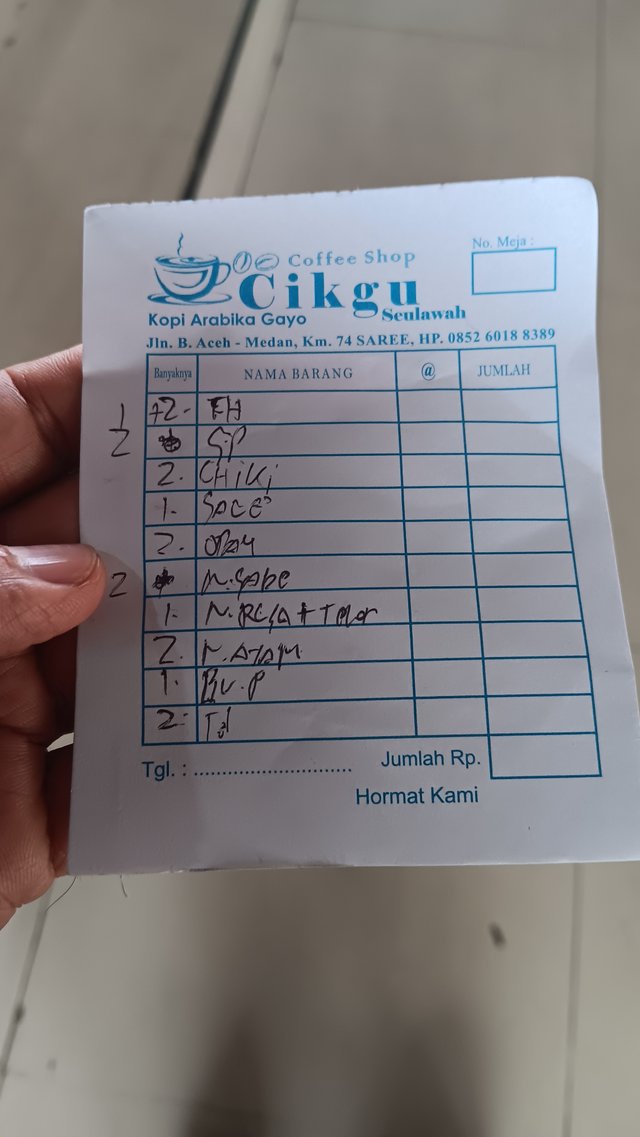 No. Meja :
Coffee Shop
Cikgu
Seulawah
Kopi Arabika Gayo
Jln. B. Aceh - Medan, Km. 74 SAREE, HP. 0852 6018 8389
Banyaknya NAMA BARANG @ JUMLAH
1 +2-
2 SP
2. CHiKi
1.
2.
2
1. + Telor
2. N. AYAM
1.
2.
Tgl. : ............................ Jumlah Rp.
Hormat Kami